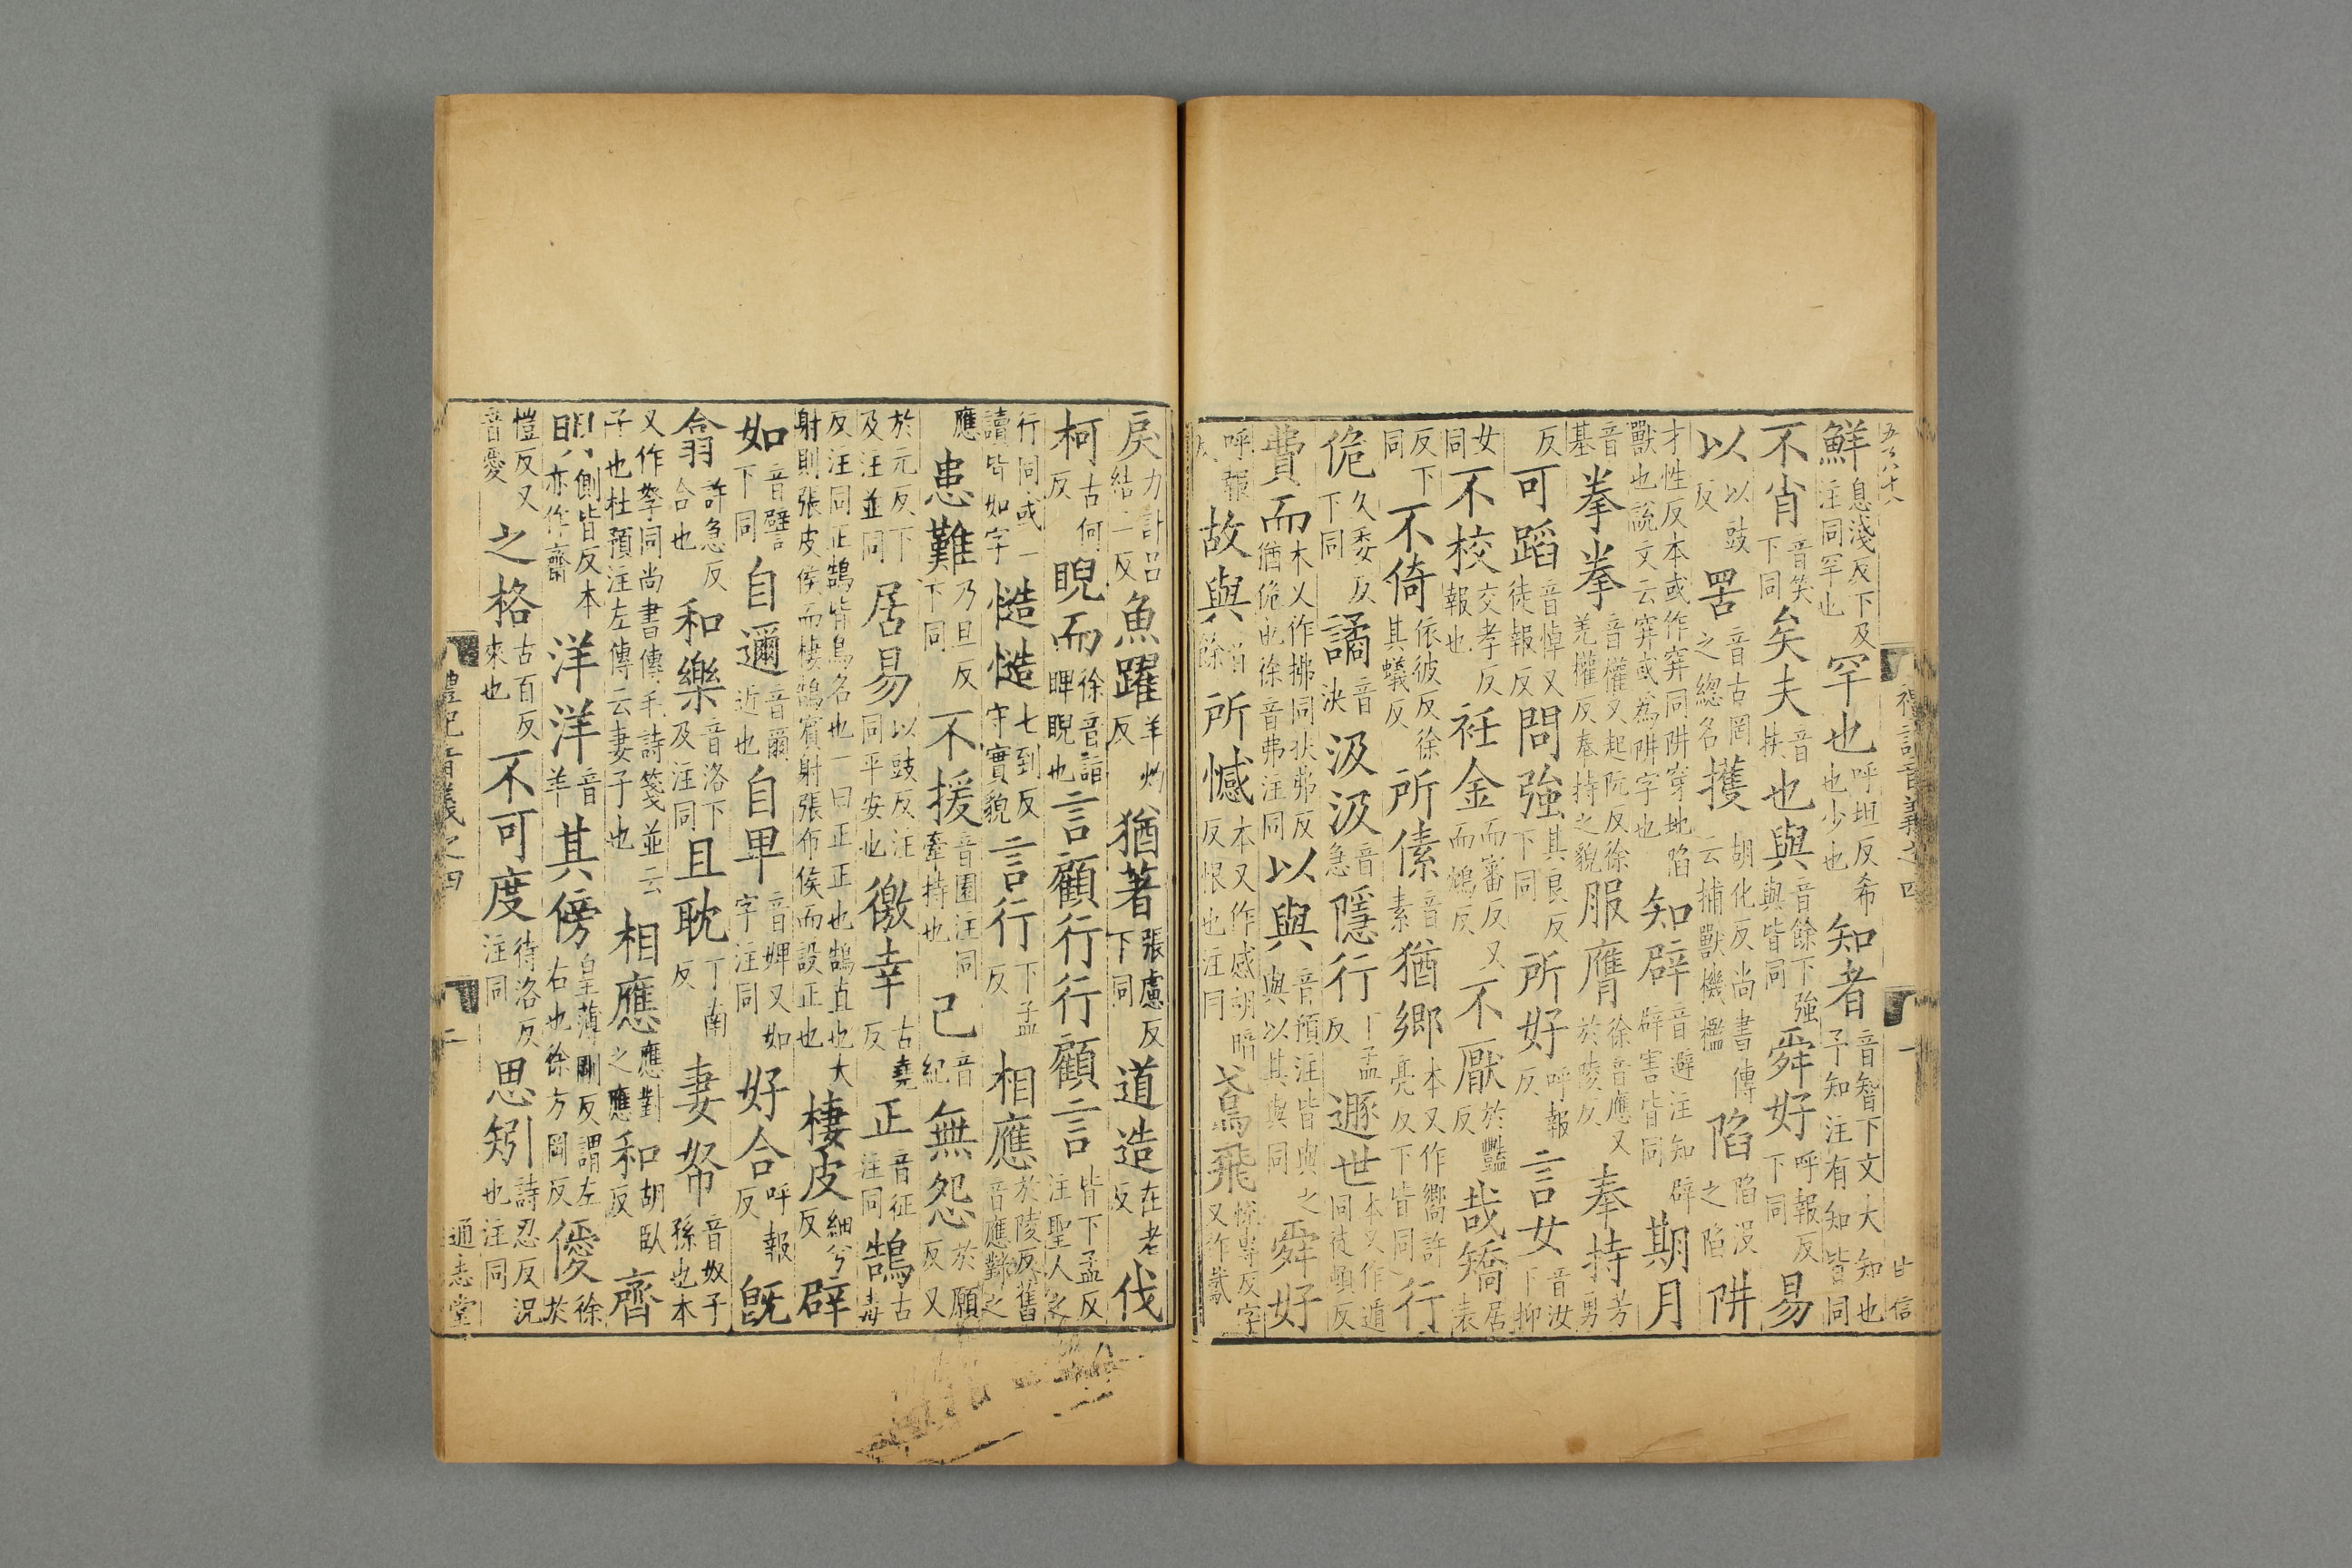 五百八十八 禮記音義之四 一 甘信
鮮息淺反下及注同罕也罕也呼坦反希也少也知者音智下文大知也予知注有知皆同
不肖音笑下同矣夫音扶也與音餘下強與皆同舜好呼報反下同易
以以豉反罟音古罔之總名擭胡化反尚書傳云捕獸機檻陷陷沒之陷阱
才性反本或作穽同阱穿地陷獸也說文云穽或為阱字也知辟音避注知辟辟害皆同期月
音基拳拳音權又起阮反徐羌權反奉持之貌服膺徐音應又於陵反奉持芳勇
反可蹈音悼又徒報反問強其良反下同所好呼報反言女音汝下抑
女同不校交孝反報也衽金而審反又而鴆反不厭於豔反哉矯居表
反下同不倚依彼反徐其蟻反所傃音素猶鄉本又作嚮許亮反下皆同行
佹久委反下同譎音決汲汲音急隱行下孟反遯世本又作遁同徒頓反
費而本又作拂同扶弗反猶佹也徐音弗注同以與音預注皆與之與以其與同舜好
呼報反故與音餘所憾本又作感胡暗反恨也注同鳶飛悅專反字又作䳒
戾力計呂結二反魚躍羊灼反猶著張慮反下同道造在老反伐
柯古何反睨而徐音詣睥睨也言顧行行顧言皆下孟反注聖人之
行同或一讀皆如字慥慥七到反守實貌言行下孟反相應於陵反舊音應對之
應患難乃旦反下同不援音園注同牽持也己音紀無怨於願反又
於元反下及注並同居易以豉反注同平安也徼幸古堯反正音征注同鵠古毒
反注同正鵠皆鳥名也一曰正正也鵠直也大射則張皮侯而棲鵠賓射張布侯而設正也棲皮細兮反辟
如音譬下同自邇音爾近也自卑音婢又如字注同好合呼報反旣
翕許急反合也和樂音洛下及注同且耽丁南反妻帑音奴子孫也本
又作孥同尚書傳毛詩箋並云子也杜預注左傳云妻子也相應應對之應和胡臥反齊
明側皆反本亦作齋洋洋音羊其傍皇薄剛反謂左右也徐方岡反僾徐於
愷反又音愛之格古百反來也不可度待洛反注同思矧詩忍反況也注同
禮記音義之四 二 通志堂